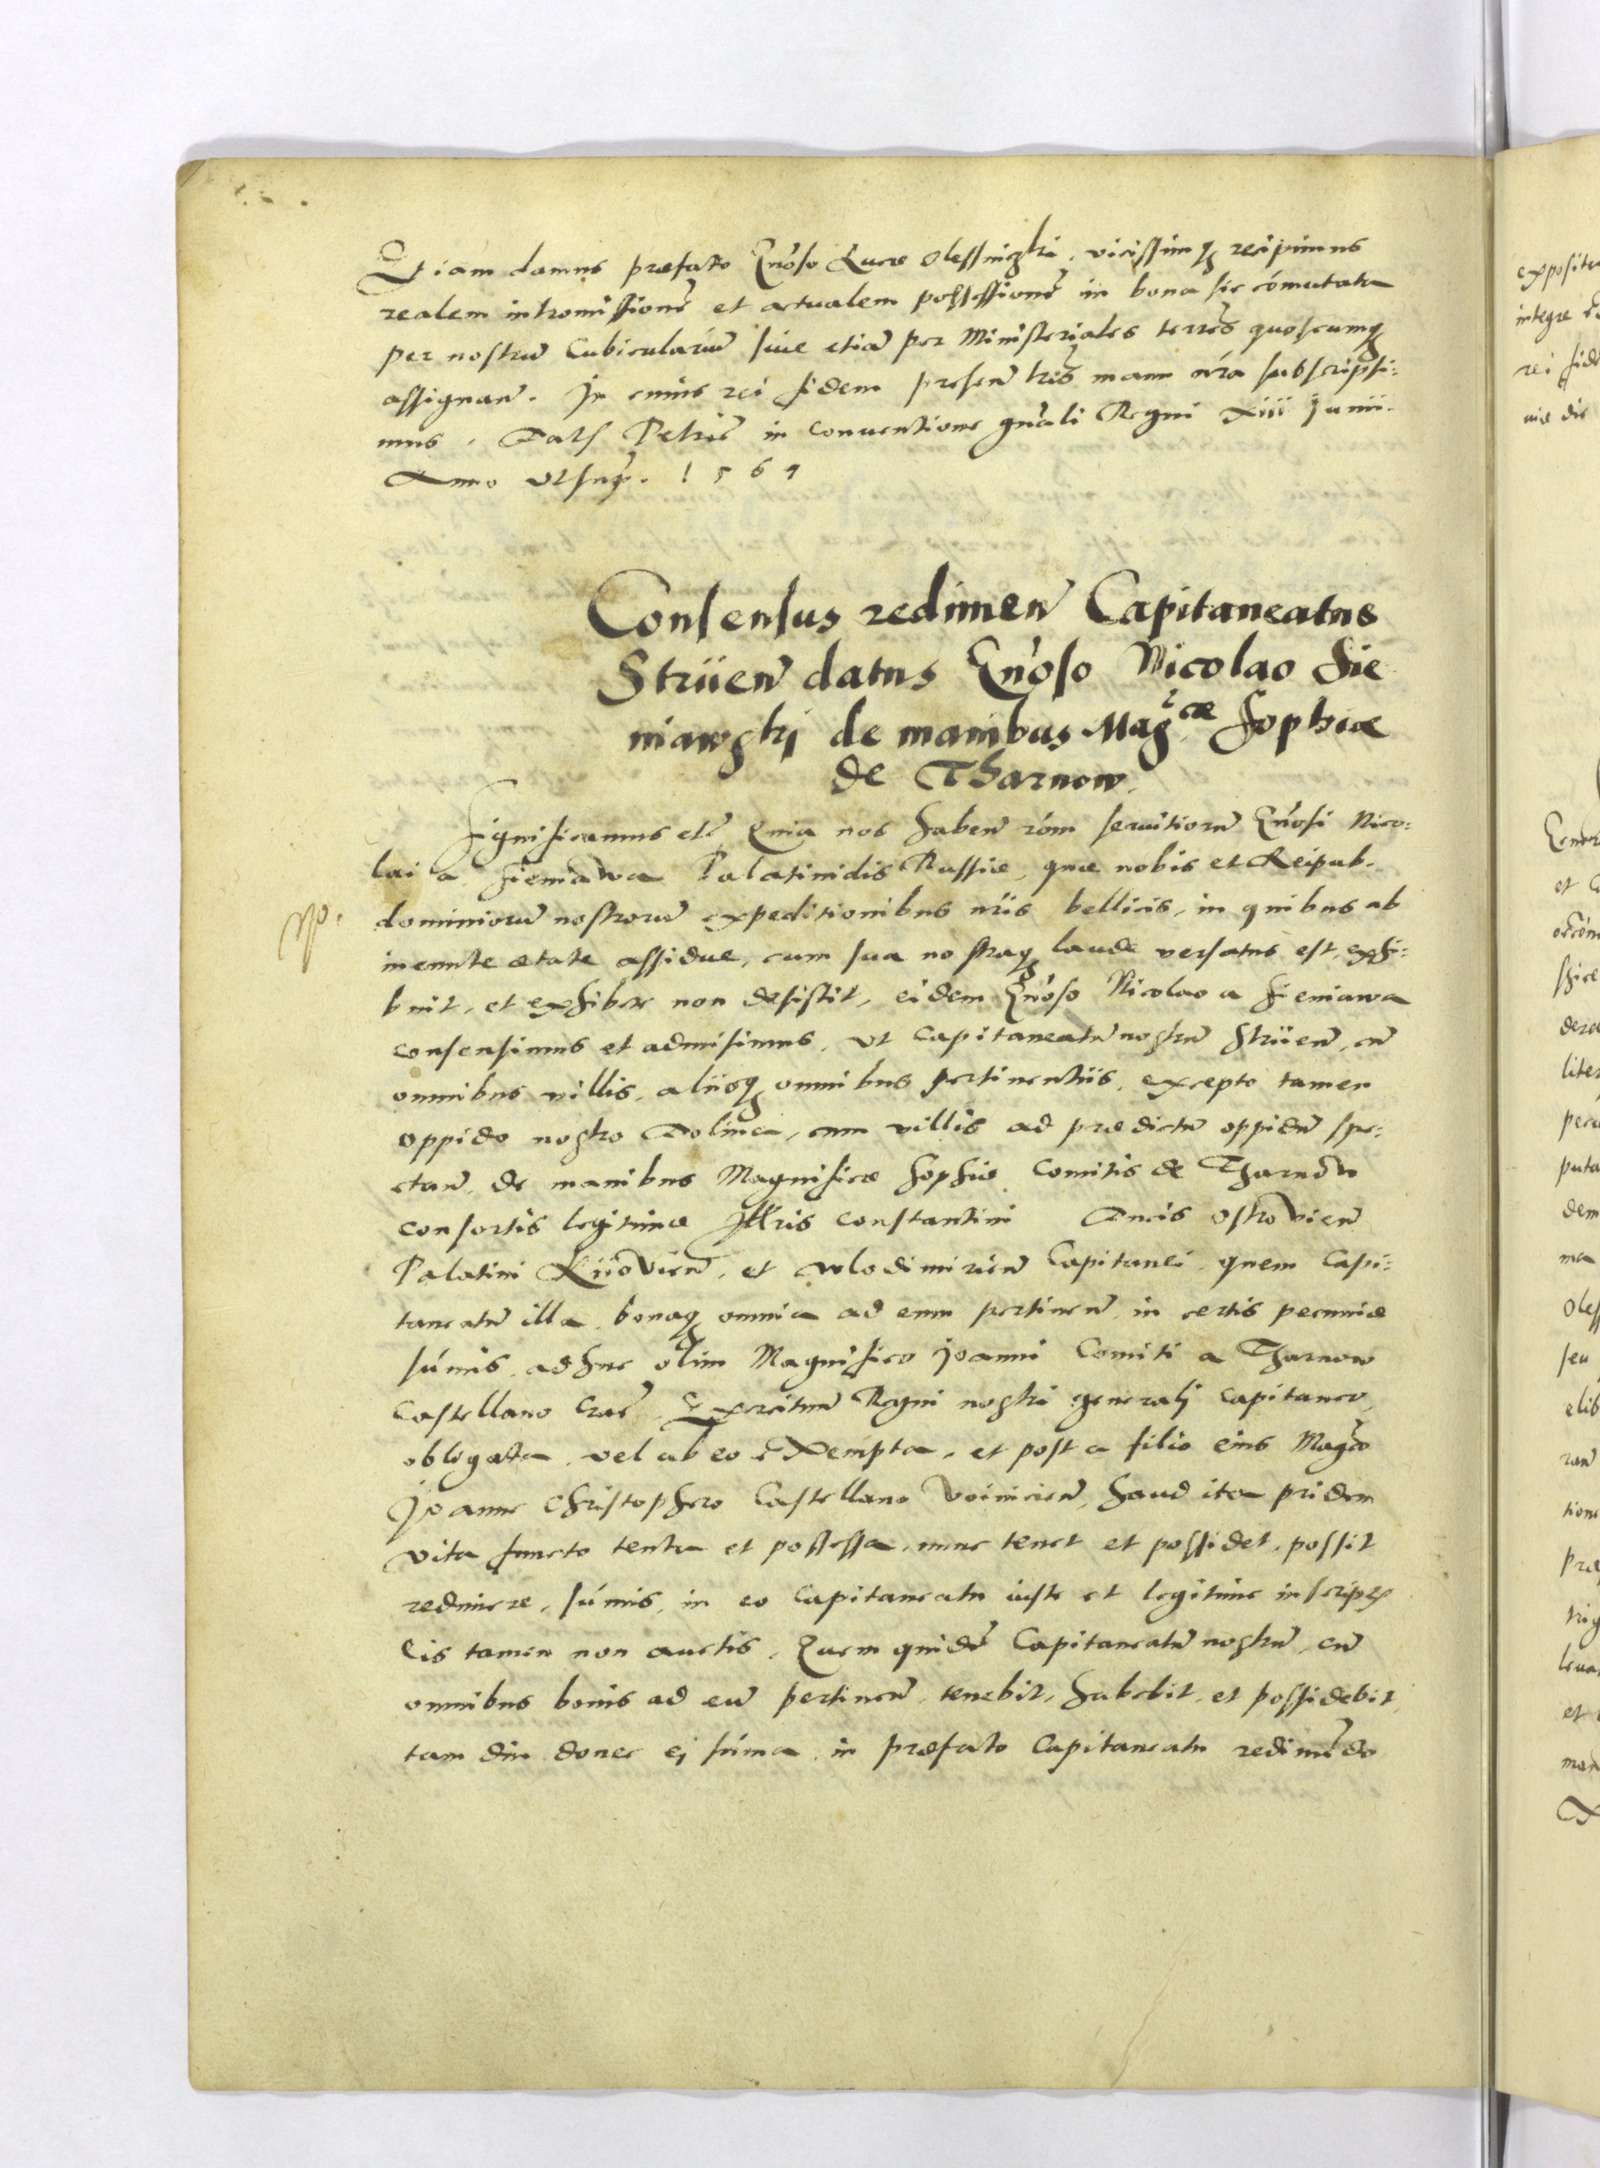 Etiam damus præfato Gn̄oso Lucæ Olessniczki, vicissimq3 recipimus
realem intromissionē et actualem possessionē in bona sic cōmutata
per nostrum Cubicularium siue etiā per Ministeriales terres quoscumq3
assignan̄. In cuius rei fidem presen̄ lrīs manu nrā subscripsi:
mus. Dat Petric̄ in conuentione gnāli Regni XIII Junii.
Anno vt sup. 1564
Consensus redimen̄ Capitaneatus
Striien̄ datus Gn̄oso Nicolao Sie
niawski de manibus Mag.cæ Sophiæ
de Tharnow.
Significamus etc̄ Quia nos haben̄ rōm seruitiorū Gn̄osi Nico:
lai a Sieniawa Palatinidis Russiæ, quæ nobis et Reipub.
dominiorū nostrorū expeditionibus nrīs bellicis, in quibus ab
ineunte ætate assidue, cum sua nostraq3 laude versatus est, exhi:
buit, et exhibere non desistit, eidem Gn̄oso Nicolao a Sieniawa
consensimus et admisimus, vt Capitaneatū nostrū Striien̄, cū
omnibus villis, aliisq3 omnibus pertinentiis, excepto tamen
oppido nostro Dolina, cum villis ad prædictū oppidū spe:
ctan̄, de manibus Magnificæ Sophiæ Comitis de Tharnow
consortis legitimæ Illris Constantini Ducis Ostrovien̄
Palatini Kiiovien̄, et Wlodimirien̄ Capitanei, quem Capi:
taneatū illa, bonaq3 omnia ad eum pertinen̄, in certis pecuniæ
sūmis, adhuc olim Magnifico Joanni Comiti a Tharnow
Castellano Crac̄, Exercituū Regni nostri generalj Capitaneo,
obligata, vel ab eo exempta, et post a filio eius Magco
Joanne Christophero Castellano Voinicien̄, haud ita pridem
vita functo tenta et possessa, nunc tenet et possidet, possit
redimere, sūmis, in eo Capitaneatu iuste et legitime inscript
iis tamen non auctis. Quem quidē Capitaneatū nostrū, cū
omnibus bonis ad eū pertinen̄, tenebit, habebit, et possidebit,
tam diu donec ej sūma, in præfato Capitaneatu redimēdo